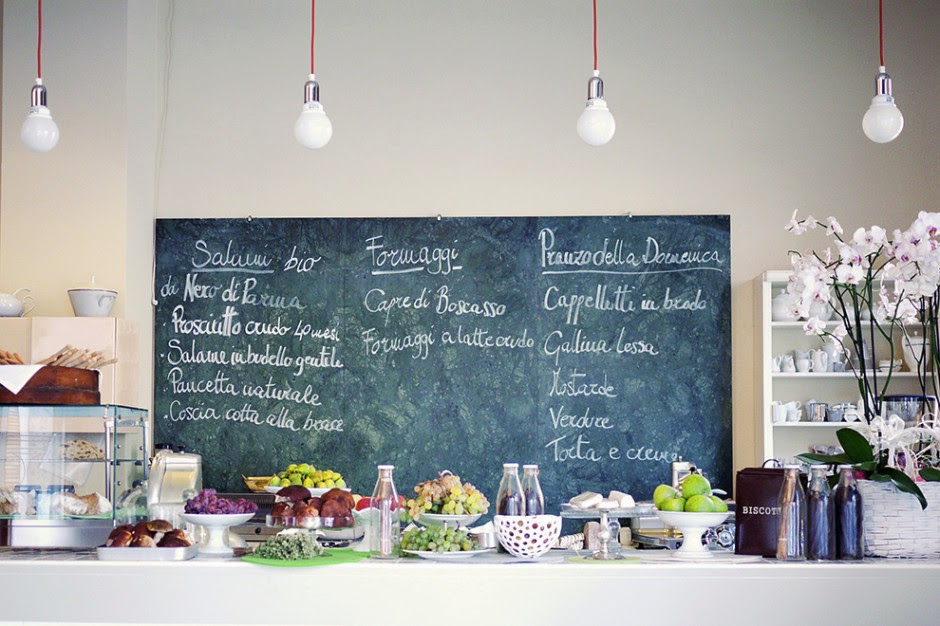 Salumi bio
da Nero di Parma
· Prosciutto crudo 40 mesi
· Salame in budello gentile
· Pancetta naturale
· Coscia cotta alla brace
Formaggi
Capre di Boscasso
Formaggi a latte crudo
Pranzo della Domenica
Cappelletti in brodo
Gallina lessa
Mostarde
Verdure
Torta e creme
BISCOTTI